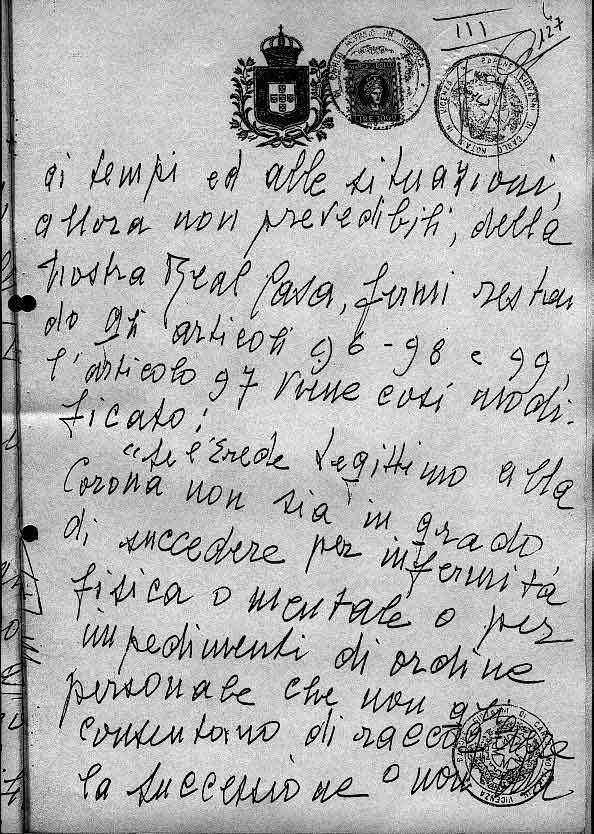 III
127
ai tempi ed alle situazioni,
allora non prevedibili, della
nostra Real Casa, fermi restan
do gli articoli 96-98 e 99,
l'articolo 97 viene così modi-
ficato:
"Se l'Erede Legittimo alla
Corona non sia in grado
di succedere per infermità
fisica o mentale o per
impedimenti di ordine
personale che non gli
consentano di raccogliere
la successione o non